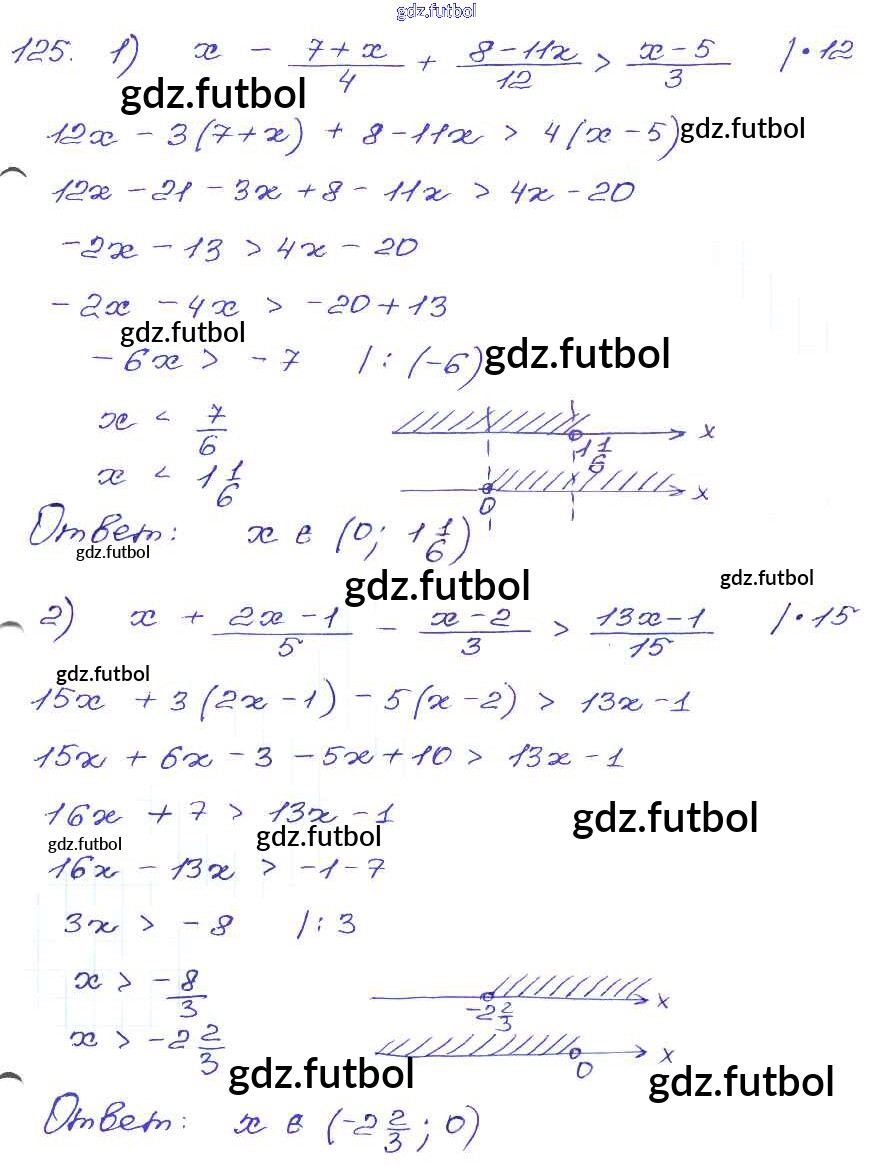 gdz.futbol
125. 1) x - (7+x)/4 + (8-11x)/12 > (x-5)/3 |·12
gdz.futbol
12x - 3(7+x) + 8-11x > 4(x-5) gdz.futbol
12x - 21 - 3x + 8 - 11x > 4x - 20
-2x - 13 > 4x - 20
-2x - 4x > -20 + 13
gdz.futbol
-6x > -7 |:(-6) gdz.futbol
x < 7/6
x
1 1/6
x < 1 1/6
x
0
Ответ: x ∈ (0; 1 1/6)
gdz.futbol
gdz.futbol gdz.futbol
2) x + (2x-1)/5 - (x-2)/3 > (13x-1)/15 |·15
gdz.futbol
15x + 3(2x-1) - 5(x-2) > 13x-1
15x + 6x - 3 - 5x + 10 > 13x - 1
16x + 7 > 13x - 1 gdz.futbol
gdz.futbol gdz.futbol
16x - 13x > -1-7
3x > -8 |:3
x > -8/3
x
-2 2/3
x > -2 2/3
x
0
gdz.futbol gdz.futbol
Ответ: x ∈ (-2 2/3; 0)